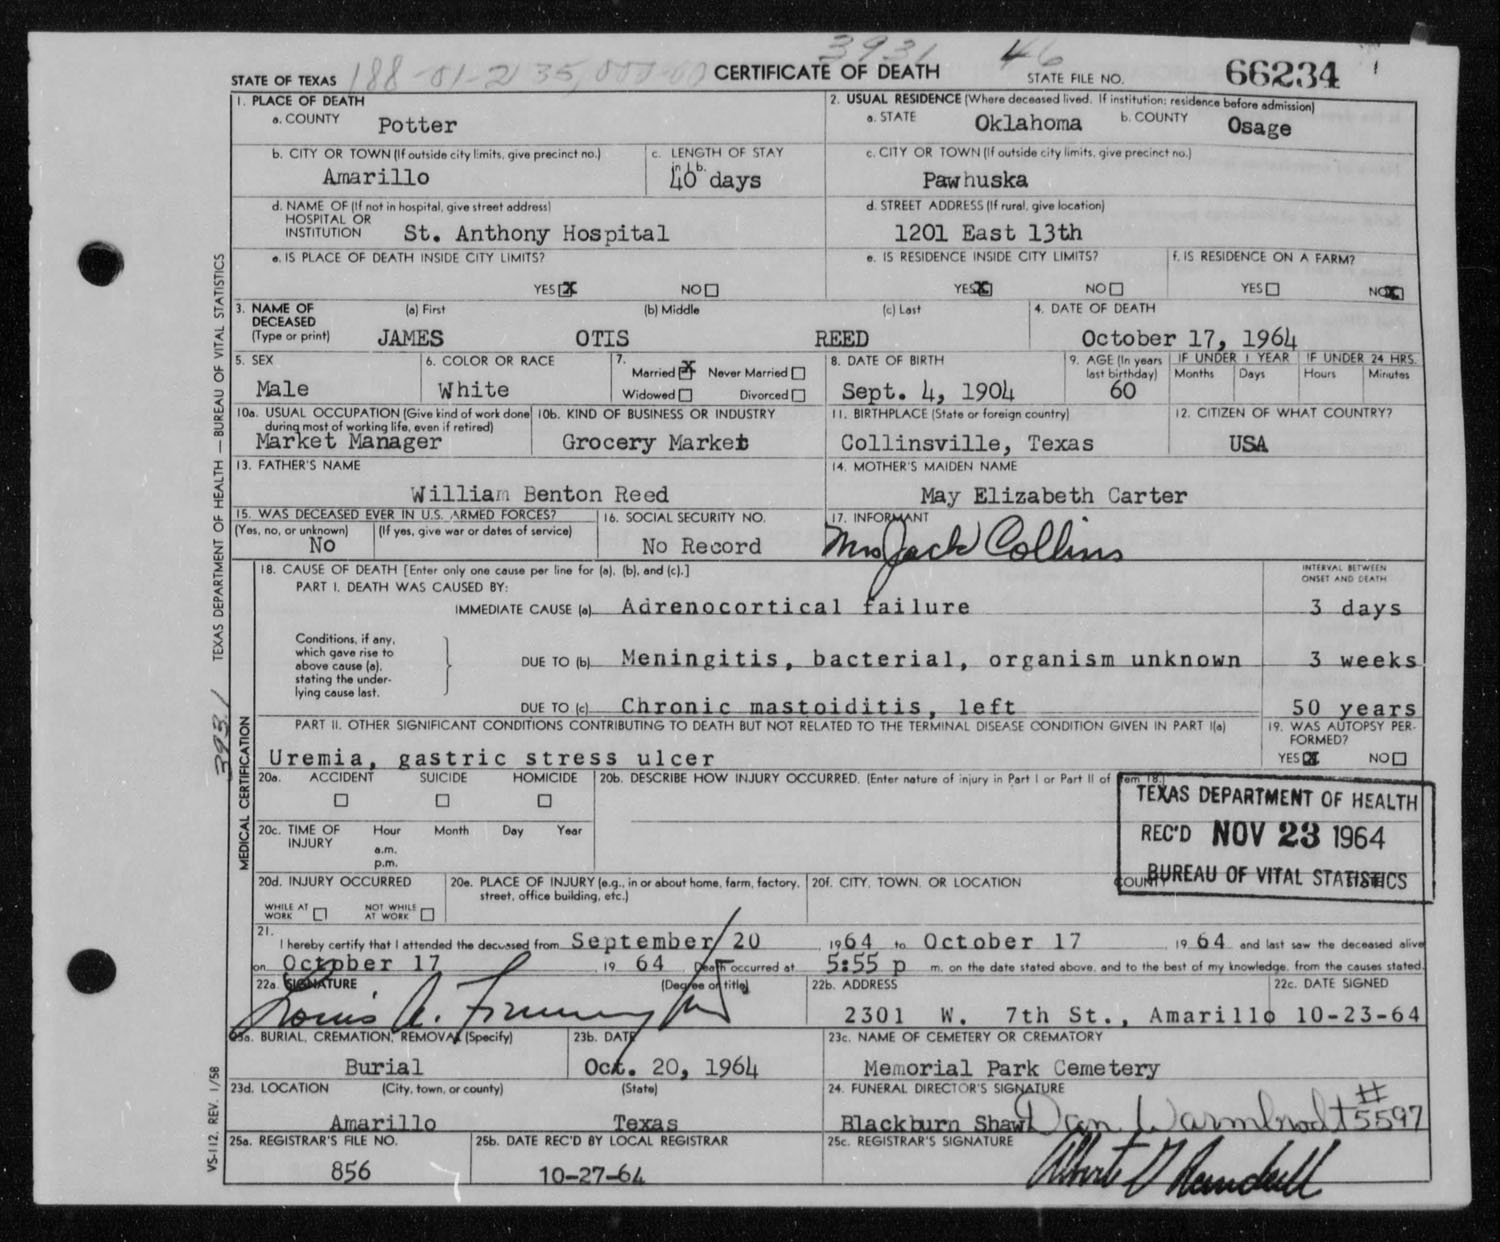 3931 46
STATE OF TEXAS 188-01-2135,000-60 CERTIFICATE OF DEATH STATE FILE NO. 66234
1. PLACE OF DEATH
a. COUNTY Potter
2. USUAL RESIDENCE (Where deceased lived. If institution: residence before admission)
a. STATE Oklahoma b. COUNTY Osage
b. CITY OR TOWN (If outside city limits, give precinct no.) Amarillo
c. LENGTH OF STAY in 1b. 40 days
c. CITY OR TOWN (If outside city limits, give precinct no.) Pawhuska
d. NAME OF (If not in hospital, give street address)
HOSPITAL OR
INSTITUTION St. Anthony Hospital
d. STREET ADDRESS (If rural, give location)
1201 East 13th
e. IS PLACE OF DEATH INSIDE CITY LIMITS?
YES X NO
e. IS RESIDENCE INSIDE CITY LIMITS?
YES X NO
f. IS RESIDENCE ON A FARM?
YES NO X
3. NAME OF DECEASED (Type or print)
(a) First JAMES (b) Middle OTIS (c) Last REED
4. DATE OF DEATH
October 17, 1964
5. SEX
Male
6. COLOR OR RACE
White
7. Married X Never Married
Widowed Divorced
8. DATE OF BIRTH
Sept. 4, 1904
9. AGE (In years last birthday) 60
IF UNDER 1 YEAR Months Days
IF UNDER 24 HRS. Hours Minutes
10a. USUAL OCCUPATION (Give kind of work done during most of working life, even if retired)
Market Manager
10b. KIND OF BUSINESS OR INDUSTRY
Grocery Market
11. BIRTHPLACE (State or foreign country)
Collinsville, Texas
12. CITIZEN OF WHAT COUNTRY?
USA
13. FATHER'S NAME
William Benton Reed
14. MOTHER'S MAIDEN NAME
May Elizabeth Carter
15. WAS DECEASED EVER IN U.S. ARMED FORCES?
(Yes, no, or unknown) (If yes, give war or dates of service)
No
16. SOCIAL SECURITY NO.
No Record
17. INFORMANT
Mrs Jack Collins
18. CAUSE OF DEATH [Enter only one cause per line for (a), (b), and (c).]
PART I. DEATH WAS CAUSED BY:
INTERVAL BETWEEN ONSET AND DEATH
IMMEDIATE CAUSE (a) Adrenocortical failure 3 days
Conditions, if any,
which gave rise to
above cause (a),
stating the under-
lying cause last.
DUE TO (b) Meningitis, bacterial, organism unknown 3 weeks
DUE TO (c) Chronic mastoiditis, left 50 years
PART II. OTHER SIGNIFICANT CONDITIONS CONTRIBUTING TO DEATH BUT NOT RELATED TO THE TERMINAL DISEASE CONDITION GIVEN IN PART I(a)
Uremia, gastric stress ulcer
19. WAS AUTOPSY PER-
FORMED?
YES X NO
20a. ACCIDENT SUICIDE HOMICIDE
20b. DESCRIBE HOW INJURY OCCURRED. (Enter nature of injury in Part I or Part II of item 18.)
TEXAS DEPARTMENT OF HEALTH
REC'D NOV 23 1964
BUREAU OF VITAL STATISTICS
20c. TIME OF INJURY Hour Month Day Year
a.m.
p.m.
20d. INJURY OCCURRED
WHILE AT WORK NOT WHILE AT WORK
20e. PLACE OF INJURY (e.g., in or about home, farm, factory, street, office building, etc.)
20f. CITY, TOWN, OR LOCATION COUNTY
21.
I hereby certify that I attended the deceased from September 20 1964 to October 17 1964 and last saw the deceased alive
on October 17 1964 Death occurred at 5:55 p m. on the date stated above, and to the best of my knowledge, from the causes stated.
22a. SIGNATURE (Degree or title)
Louis A.
22b. ADDRESS
2301 W. 7th St., Amarillo
22c. DATE SIGNED
10-23-64
23a. BURIAL, CREMATION, REMOVAL (Specify)
Burial
23b. DATE
Oct. 20, 1964
23c. NAME OF CEMETERY OR CREMATORY
Memorial Park Cemetery
23d. LOCATION (City, town, or county) (State)
Amarillo Texas
24. FUNERAL DIRECTOR'S SIGNATURE
Blackburn Shaw Dan Warmbrodt #5597
25a. REGISTRAR'S FILE NO.
856
25b. DATE REC'D BY LOCAL REGISTRAR
10-27-64
25c. REGISTRAR'S SIGNATURE
TEXAS DEPARTMENT OF HEALTH — BUREAU OF VITAL STATISTICS
3931
MEDICAL CERTIFICATION
VS-112, REV. 1/58